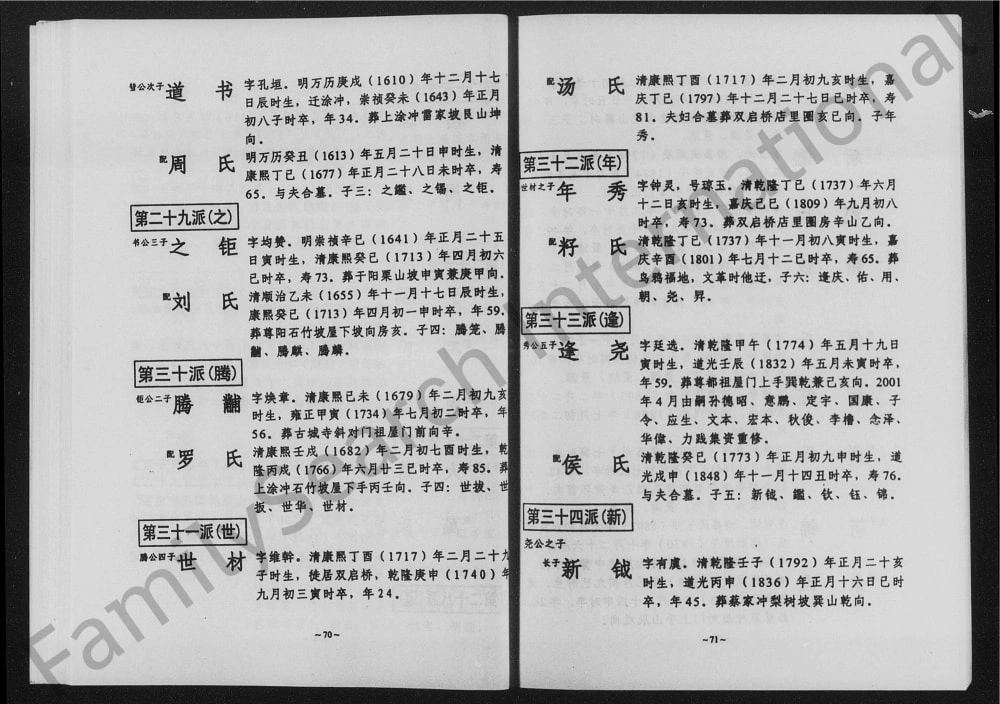 訾公次子 道 书 字孔垣。明万历庚戌（1610）年十二月十七
日辰时生，迁涂冲，崇祯癸未（1643）年正月
初八子时卒，年34。葬上涂冲雷家坡艮山坤
向。
配 周 氏 明万历癸丑（1613）年五月二十日申时生，清
康熙丁巳（1677）年正月二十八日未时卒，寿
65。与夫合墓。子三：之鑑、之锡、之钜。
第二十九派(之)
书公三子 之 钜 字均赞。明崇祯辛巳（1641）年正月二十五
日寅时生，清康熙癸巳（1713）年四月初六
巳时卒，寿73。葬于阳栗山坡申寅兼庚甲向。
配 刘 氏 清顺治乙未（1655）年十一月十七日辰时生，
康熙癸巳（1713）年四月初一申时卒，年59。
葬尊阳石竹坡屋下坡向房亥。子四：腾笼、腾
黼、腾麒、腾麟。
第三十派(腾)
钜公二子 腾 黼 字焕章。清康熙己未（1679）年二月初九亥
时生，雍正甲寅（1734）年七月初二时卒，年
56。葬古城寺斜对门祖屋门前向辛。
配 罗 氏 清康熙壬戌（1682）年二月初七酉时生，乾
隆丙戌（1766）年六月廿三巳时卒，寿85。葬
上涂冲石竹坡屋下手丙壬向。子四：世拔、世
扳、世华、世材。
第三十一派(世)
腾公四子 世 材 字维幹。清康熙丁酉（1717）年二月二十九
子时生，徒居双启桥，乾隆庚申（1740）年
九月初三寅时卒，年24。
~70~
配 汤 氏 清康熙丁酉（1717）年二月初九亥时生，嘉
庆丁巳（1797）年十二月二十七日巳时卒，寿
81。夫妇合墓葬双启桥店里圈亥巳向。子年
秀。
第三十二派(年)
世材之子 年 秀 字钟灵，号琼玉。清乾隆丁巳（1737）年六月
十二日亥时生，嘉庆己巳（1809）年九月初八
时卒，寿73。葬双启桥店里圈房辛山乙向。
配 籽 氏 清乾隆丁巳（1737）年十一月初八寅时生，嘉
庆辛酉（1801）年七月十二巳时卒，寿65。葬
乌鸦福地，文革时他迁，子六：逢庆、佑、用、
朝、尧、昇。
第三十三派(逢)
秀公五子 逢 尧 字廷选。清乾隆甲午（1774）年五月十九日
寅时生，道光壬辰（1832）年五月未寅时卒，
年59。葬尊都祖屋门上手巽乾兼己亥向。2001
年4月由嗣孙德昭、意鹏、定宇、国康、子
令、应生、文本、宏本、秋俊、李櫓、念泽、
华偉、力践集资重修。
配 侯 氏 清乾隆癸巳（1773）年正月初九申时生，道
光戊申（1848）年十一月十四丑时卒，寿76。
与夫合墓。子五：新钺、鑑、钦、钰、锦。
第三十四派(新)
尧公之子
长子 新 钺 字有虞。清乾隆壬子（1792）年正月二十亥
时生，道光丙申（1836）年正月十六日巳时
卒，年45。葬蔡家冲梨树坡巽山乾向。
~71~
FamilySearch International